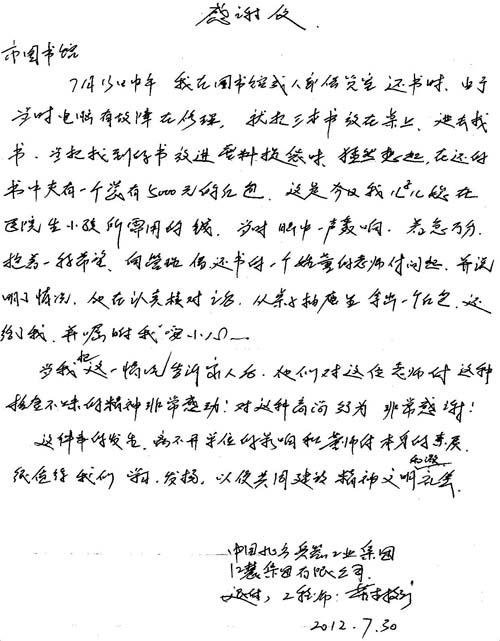 感谢信
市图书馆
7月13日中午 我在图书馆成人外借室还书时，由于
当时电脑有故障在修理，就把三本书放在桌上，进去找
书。当把找到的书放进塑料提袋时，猛然想起，在还的
书中夹有一个装有5000元的红包，这是今日我儿媳在
医院生小孩所需用的钱，当时脑中一声轰响，着急万分，
抱着一线希望，向管理借还书的一个姓董的老师付问起，并说
明了情况，他在认真核对之后，从桌子抽屉里拿出一个红包，还
给了我，并嘱咐我"要小心"
当我把这一情况告诉家人后，他们对这位老师付这种
拾金不昧的精神非常感动！对这种高尚行为 非常感谢！
这件事的发生，离不开单位的影响和董师付本身的素质，
很值得我们学习、发扬，以便共同建设精神文明的
中国北方兵器工业集团
江麓集团有限公司
工程师：
2012.7.30